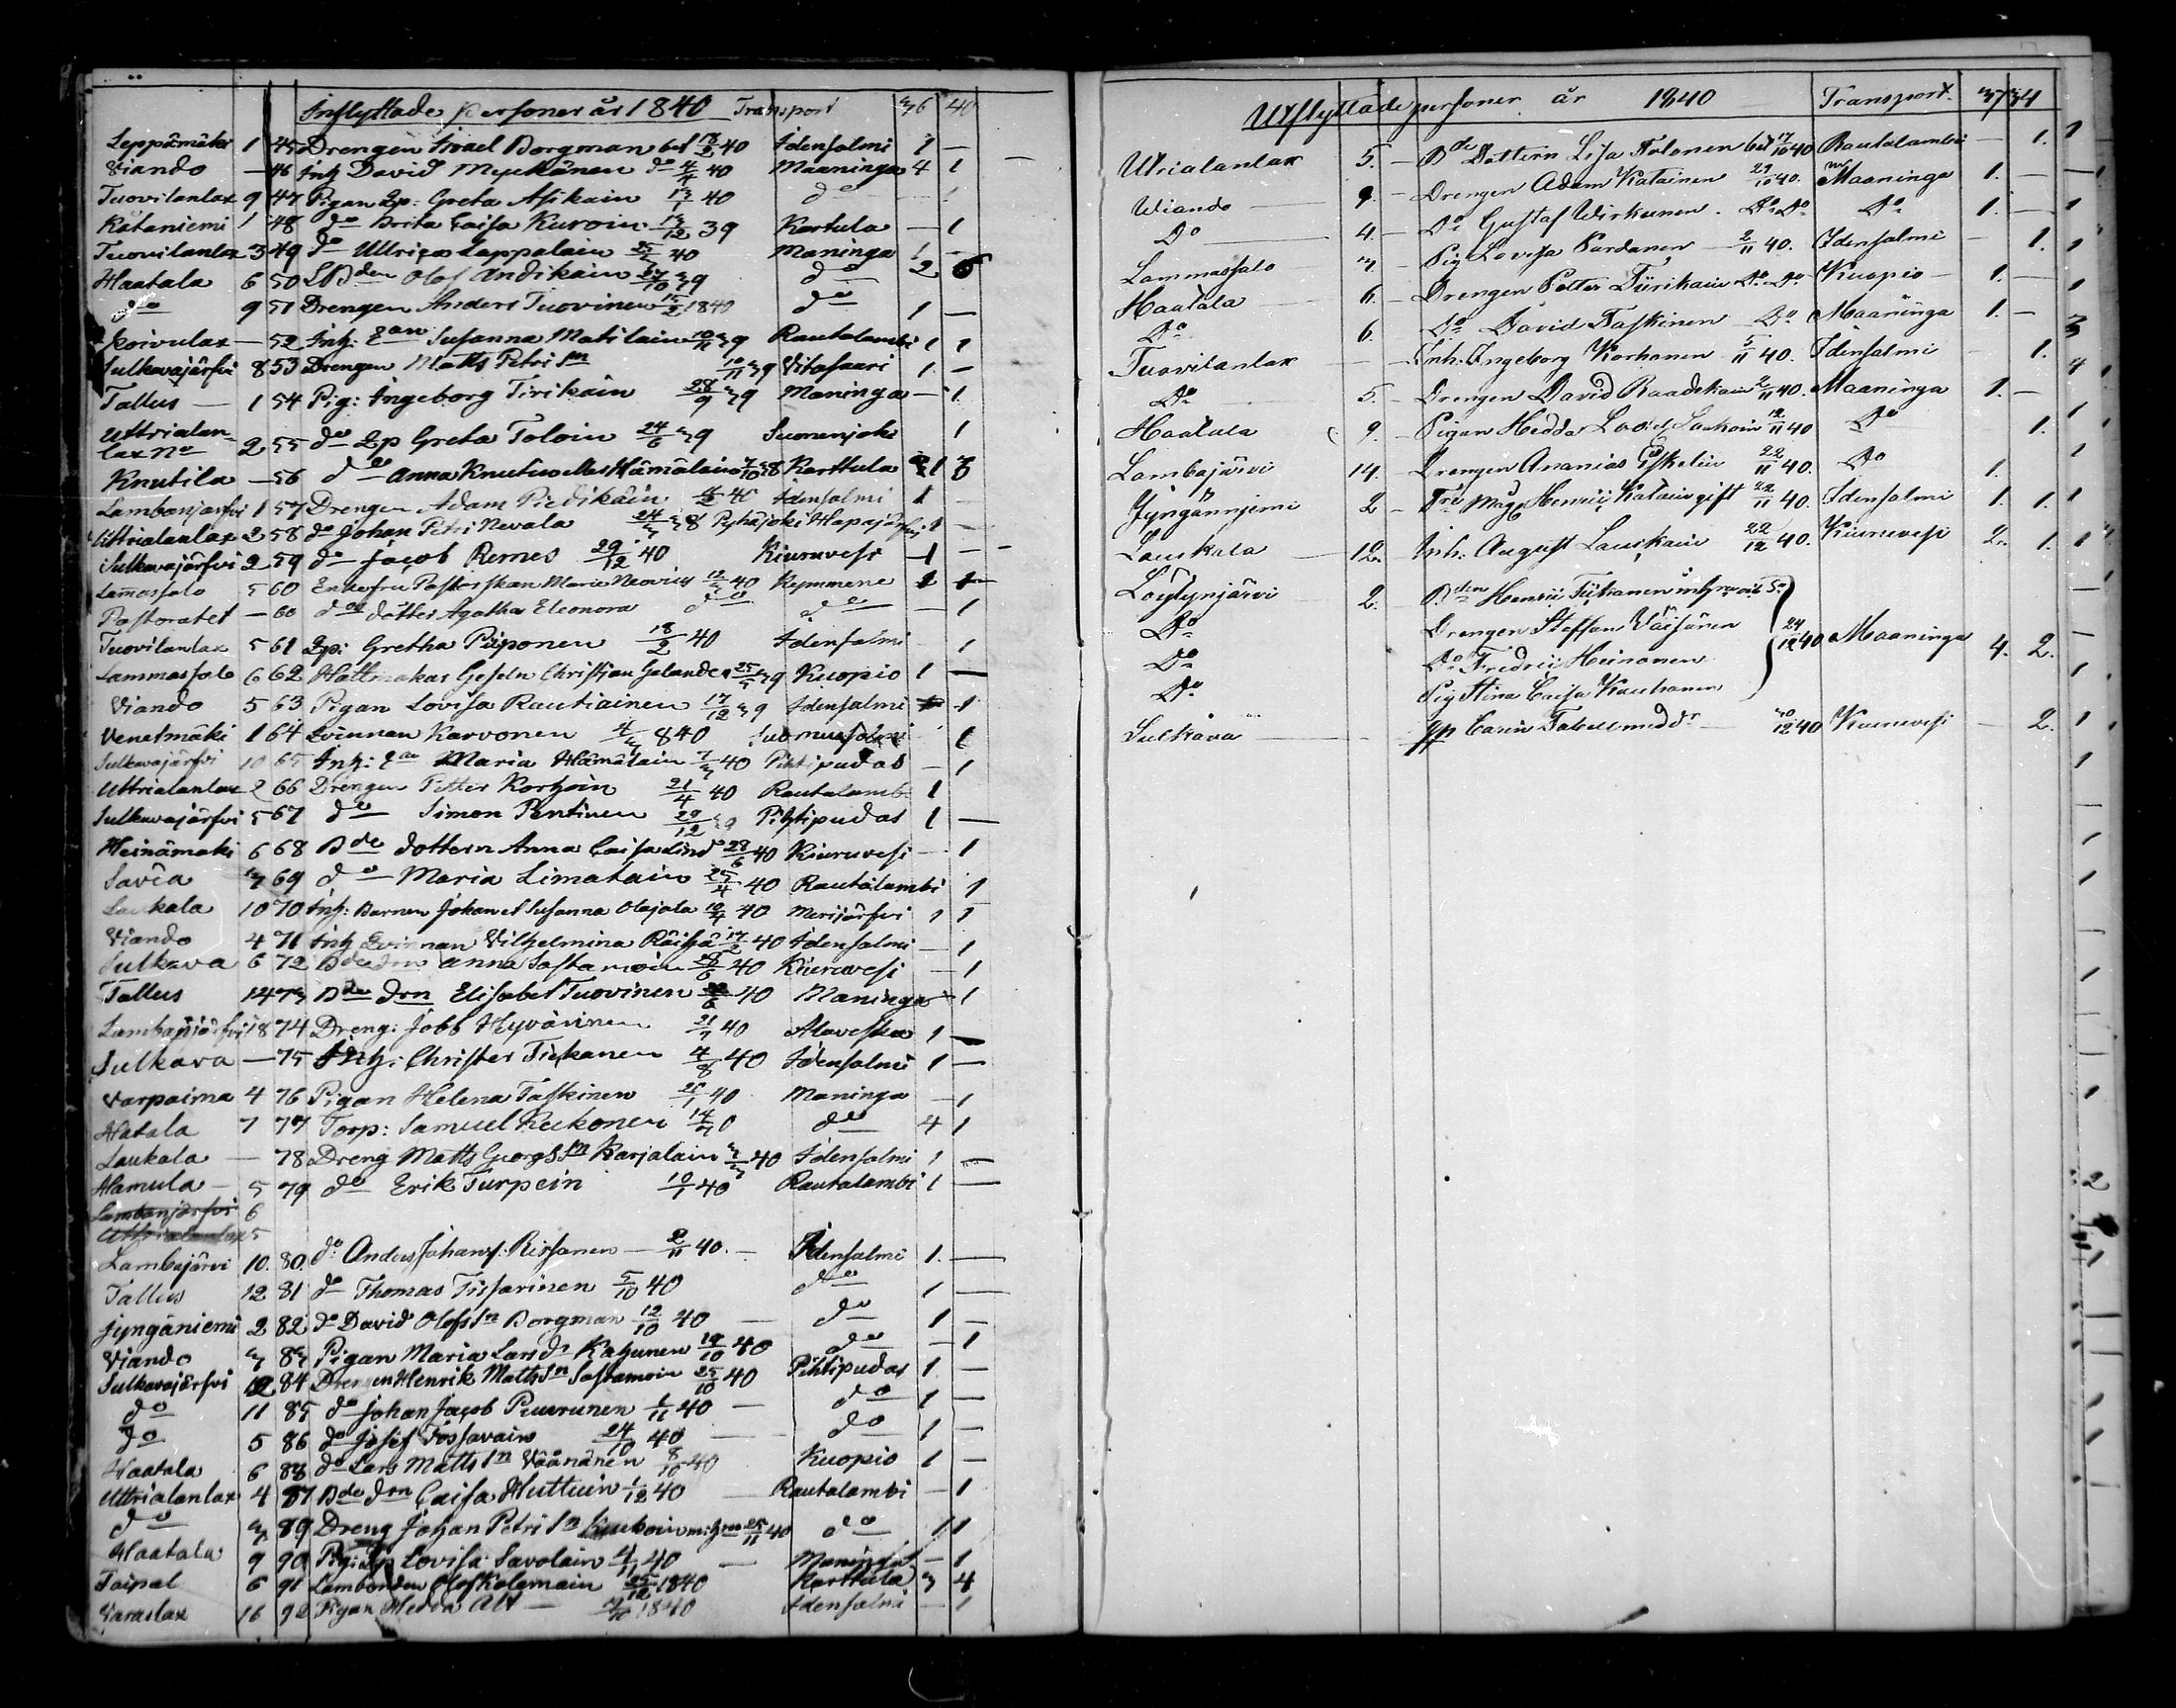 Inflyttade Personer år 1840 Transport 36 40
Leppämäki 1 45 Drengen Israel Borgman bet 18/2 40 Idensalmi 1 —
Viando — 46 Inh David Myckänen do 4/4 40 Maaninga 4 1
Tuovilanlax 9 47 Pigan Lp: Greta Asikain 40 do
Rataniemi 1 48 do Brita Caisa Kuroin 12 39 Kartula — 1
Tuovilanlax 3 49 do Ullrica Lappalain 25 40 Maninga 1 —
Haatala 6 50 LBden Olof Andikain 10 39 do 2 6
do 9 51 Drengen Anders Tuovinen 15/2 1840 do 1 —
Koivulax — 52 Inh: Susanna Matilain 10/11 39 Rautalambi 1 1
Sulkavajärfvi 8 53 Drengen Matts Petri Sn 10/11 39 Vitasaari 1 —
Tallus — 1 54 Pig: Ingeborg Tirikain 28/9 39 Maninga — 1
Uttrialan-
lax No 2 55 do Lp Greta Toloin 24/6 39 Suonenjoki 1
Knutila — 56 do Anna Knutin Hämäläin 10 38 Karttula 1 3
Lambanjärfvi 1 57 Drengen Adam Piedikäin 40 Idensalmi 1 —
Uttrialanlax 2 58 do Johan Petri Nevala 24 38 Pyhäjoki Hapajärfvi 1 —
Sulkavajärfvi 2 59 do Jacob Remes 29/12 40 Kiuruvesi 1 —
Lamassalo 5 60 Enkefru Pastorskan Maria Neovius 40 Kymmene
Pastoratet — 60 dotter Agatha Eleonora do do — 1
Tuovilanlax 5 61 Lp: Gretha Piiponen 18/2 40 Idensalmi — 1
Lammassalo 6 62 Hattmakar Geseln Christian Gelander 25 39 Kuopio 1 —
Viando 5 63 Pigan Lovisa Rautiainen 17/12 39 Idensalmi 1
Venetmäki 1 64 Qvinnan Karvonen 840 Suomussalmi 1
Sulkavajärfvi 10 65 Inh: Maria Hämälain 7 40 Pihtipudas — 1
Uttrialanlax 2 66 Drengen Petter Korhoin 21/4 40 Rautalamb 1
Sulkavajärfvi 5 67 do Simon Pentinen 29/12 39 Pihtipudas 1 —
Heinämäki 6 68 Bde dottern Anna Caisa Lind 28/6 40 Kiuruvesi — 1
Savia 3 69 do Maria Limatain 25/4 40 Rautalambi 1
Laukala 10 70 Inh: Barnen Johan et Susanna Olajala 40 Merijärfvi 1 1
Viando 4 71 Inh Qvinnan Vilhelmina Räisä 17/2 40 Idensalmi — 1
Sulkava 6 72 Anna Sastamoin 28/6 40 Kiuruvesi — 1
Tallus 14 73 Bde drn Elisabet Tuovinen 40 Maninga — 1
Lambanjärfvi 18 74 Dreng: Jobb Hyvärinen 21 40 Alaveska 1 —
Sulkava — 75 Inh: Christer Tiekanen 4/8 40 Idensalmi 1 —
Varpaima 4 76 Pigan Helena Taskinen 40 Maninga — 1
Hatala 7 77 Torp: Samuel Reckonen 14 40 do 4 1
Laukala — 78 Dreng Matts Georgs Sn Karjalain 40 Idensalmi 1 —
Alamula — 5 79 do Erik Turpein 10/1 40 Rautalambi 1 —
Lambanjärfvi 6
Uttrialanlax 5
Lambajärvi 10. 80. do Anders Johans. Rissanen — 2/11 40. — Idensalmi 1. —
Tallus 12 81 do Thomas Tissarinen 5/10 40 do 1 —
Jyngäniemi 2 82 do David Olofs Sn Borgman 12/10 40 do 1 —
Viando 3 83 Pigan Maria Lars dr Kahunen 19/10 40 do — 1
Sulkavajärfvi 12 84 Drengen Henrik Matts Sn Sastamoin 25/10 40 Pihtipudas 1 —
do 11 85 do Johan Jacob Puurunen 1/11 40 — do 1 —
do 5 86 do Josef Tossavain 24/10 40 — do 1 —
Haatala 6 88 do Lars Matts Sn Väänänen 8/10 40 Kuopio 1 —
Uttrialanlax 4 87 Bde drn Caisa Huttuin 1/12 40 — Rautalambi — 1
do 3 89 Dreng Johan Petri Sn 25/11 40 do 1 1
Haatala 9 90 Pig: Lovisa Savolain 40 — Maninga — 1
Taipal 6 91 Lambonden Olof Kolemain 25/12 1840 Karttula 3 4
Varaslax 16 92 Pigan Hedda Alt — 1840 Idensalmi — 1
Utflyttade personer år 1840 Transport. 37 34
Utrialanlax 5. — Bde Dottern Lisa Tolonen bet 17/10 40 Rautalambi — 1.
Wiando 9. — Drengen Adam Katainen 27/10 40. Maaninga 1. —
Do 4. — Do Gustaf Wirkunen. Do Do Do 1. —
Lammassalo 3. — Pig Lovisa Pardanen 2/11 40. Idensalmi — 1.
Haatala 6. — Drengen Petter Tiirikain Do Do Kuopio 1. —
Do 6. Do David Taskinen Do Maaninga 1. —
Tuovilanlax — Inh. Ingeborg Korhonen 5/11 40. Idensalmi 1.
Do 5. Drengen David Raadikain 2/11 40. Maaninga 1. —
Haatala 9. — Pigan Hedda Lovis Laakoin 12/11 40 Do 1.
Lambajärvi 14. Drengen Ananias Eskelin 22/11 40. Do 1.
Jyngännjemi 2 — Henric Katain gift 22/11 40. Idensalmi 1. 1.
Laukala 12. Inh. August Lauskain 22/12 40. Kiuruvesi 2. 1.
Löytynjärvi 2. Bden Henric Tiihanen
Do Drengen Steffan Väisänen 24/12 40 Maaninga 4. 2.
Do Do Fredric Heinonen
Do Pig Stina Caisa Kauhanen
Sulkava Carin Tabell med dr 30/12 40 Kiuruvesi — 2.